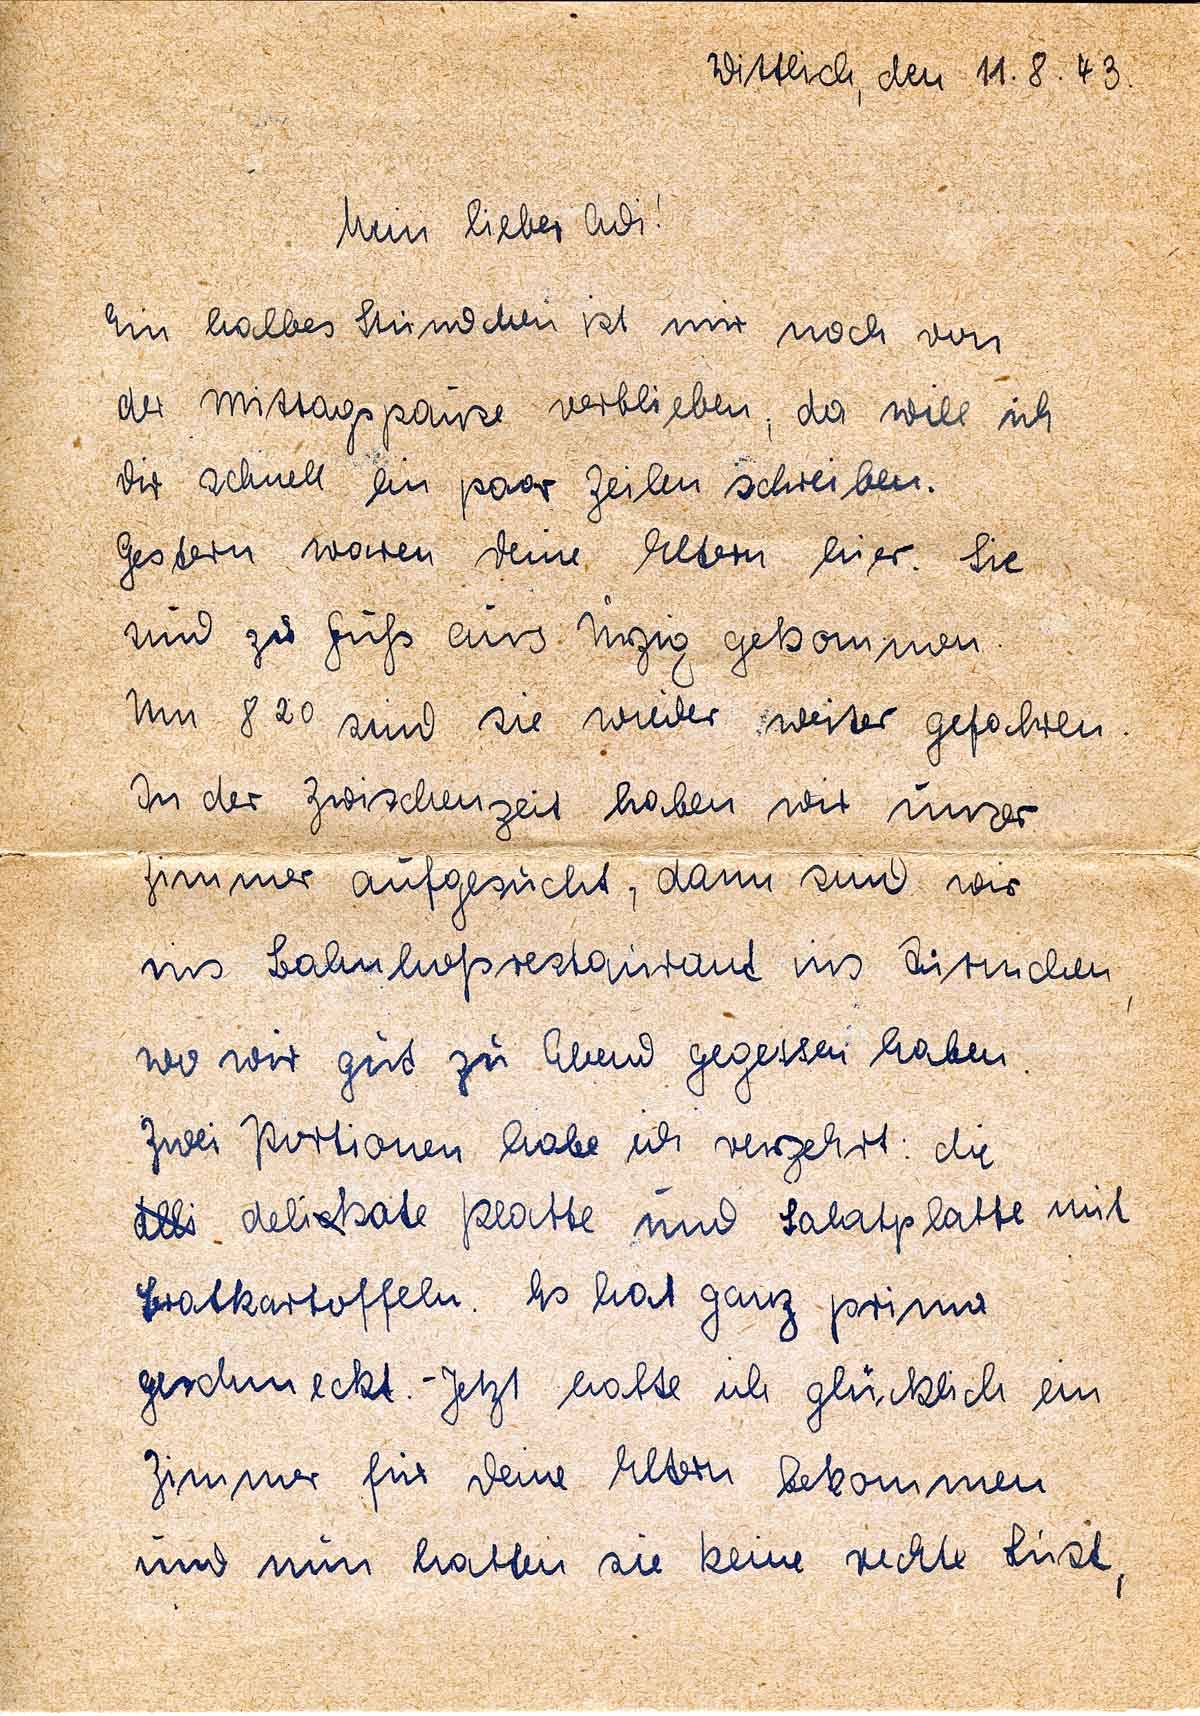 Wittlich, den 11.8.43.
Mein lieber Adi!
Ein halbes Stündchen ist mir noch von
der Mittagspause verblieben, da will ich
Dir schnell ein paar Zeilen schreiben.
Gestern waren Deine Eltern hier. Sie
sind zu Fuß aus Ürzig gekommen.
Um 8 20 sind sie wieder weiter gefahren.
In der Zwischenzeit haben wir unser
Zimmer aufgesucht, dann sind wir
ins Bahnhofsrestaurant ins
wo wir gut zu Abend gegessen haben.
Zwei Portionen habe ich verzehrt: die
delikate Platte und Salatplatte mit
Bratkartoffeln. Es hat ganz prima
geschmeckt. - Jetzt hatte ich glücklich ein
Zimmer für Deine Eltern bekommen
und nun hatten sie keine rechte Lust,